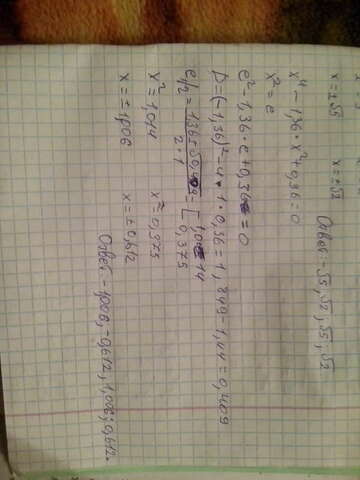 x = ±√5    x = ±√2
Ответ: -√5, √2, √5, √2
x⁴ - 1,36 · x² + 0,36 = 0
x² = e
e² - 1,36 · e + 0,36 = 0
D = (-1,36)² - 4 · 1 · 0,36 = 1,849 - 1,44 = 0,409
e1/2 = = [ 1,014
0,375
2 · 1
x² = 1,014    x² = 0,375
x = ±1,006    x = ±0,612
Ответ: -1,006, -0,612, 1,006; 0,612.